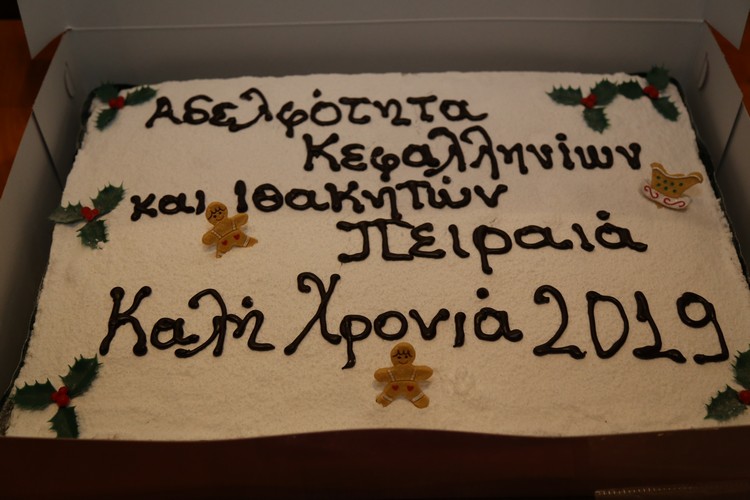 Αδελφότητα
Κεφαλληνίων
και Ιθακητών
Πειραιά
Καλή Χρονιά 2019